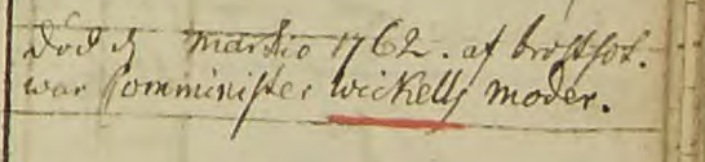 Död d Martio 1762. af bröstsot.
war Comminister Wickells moder.